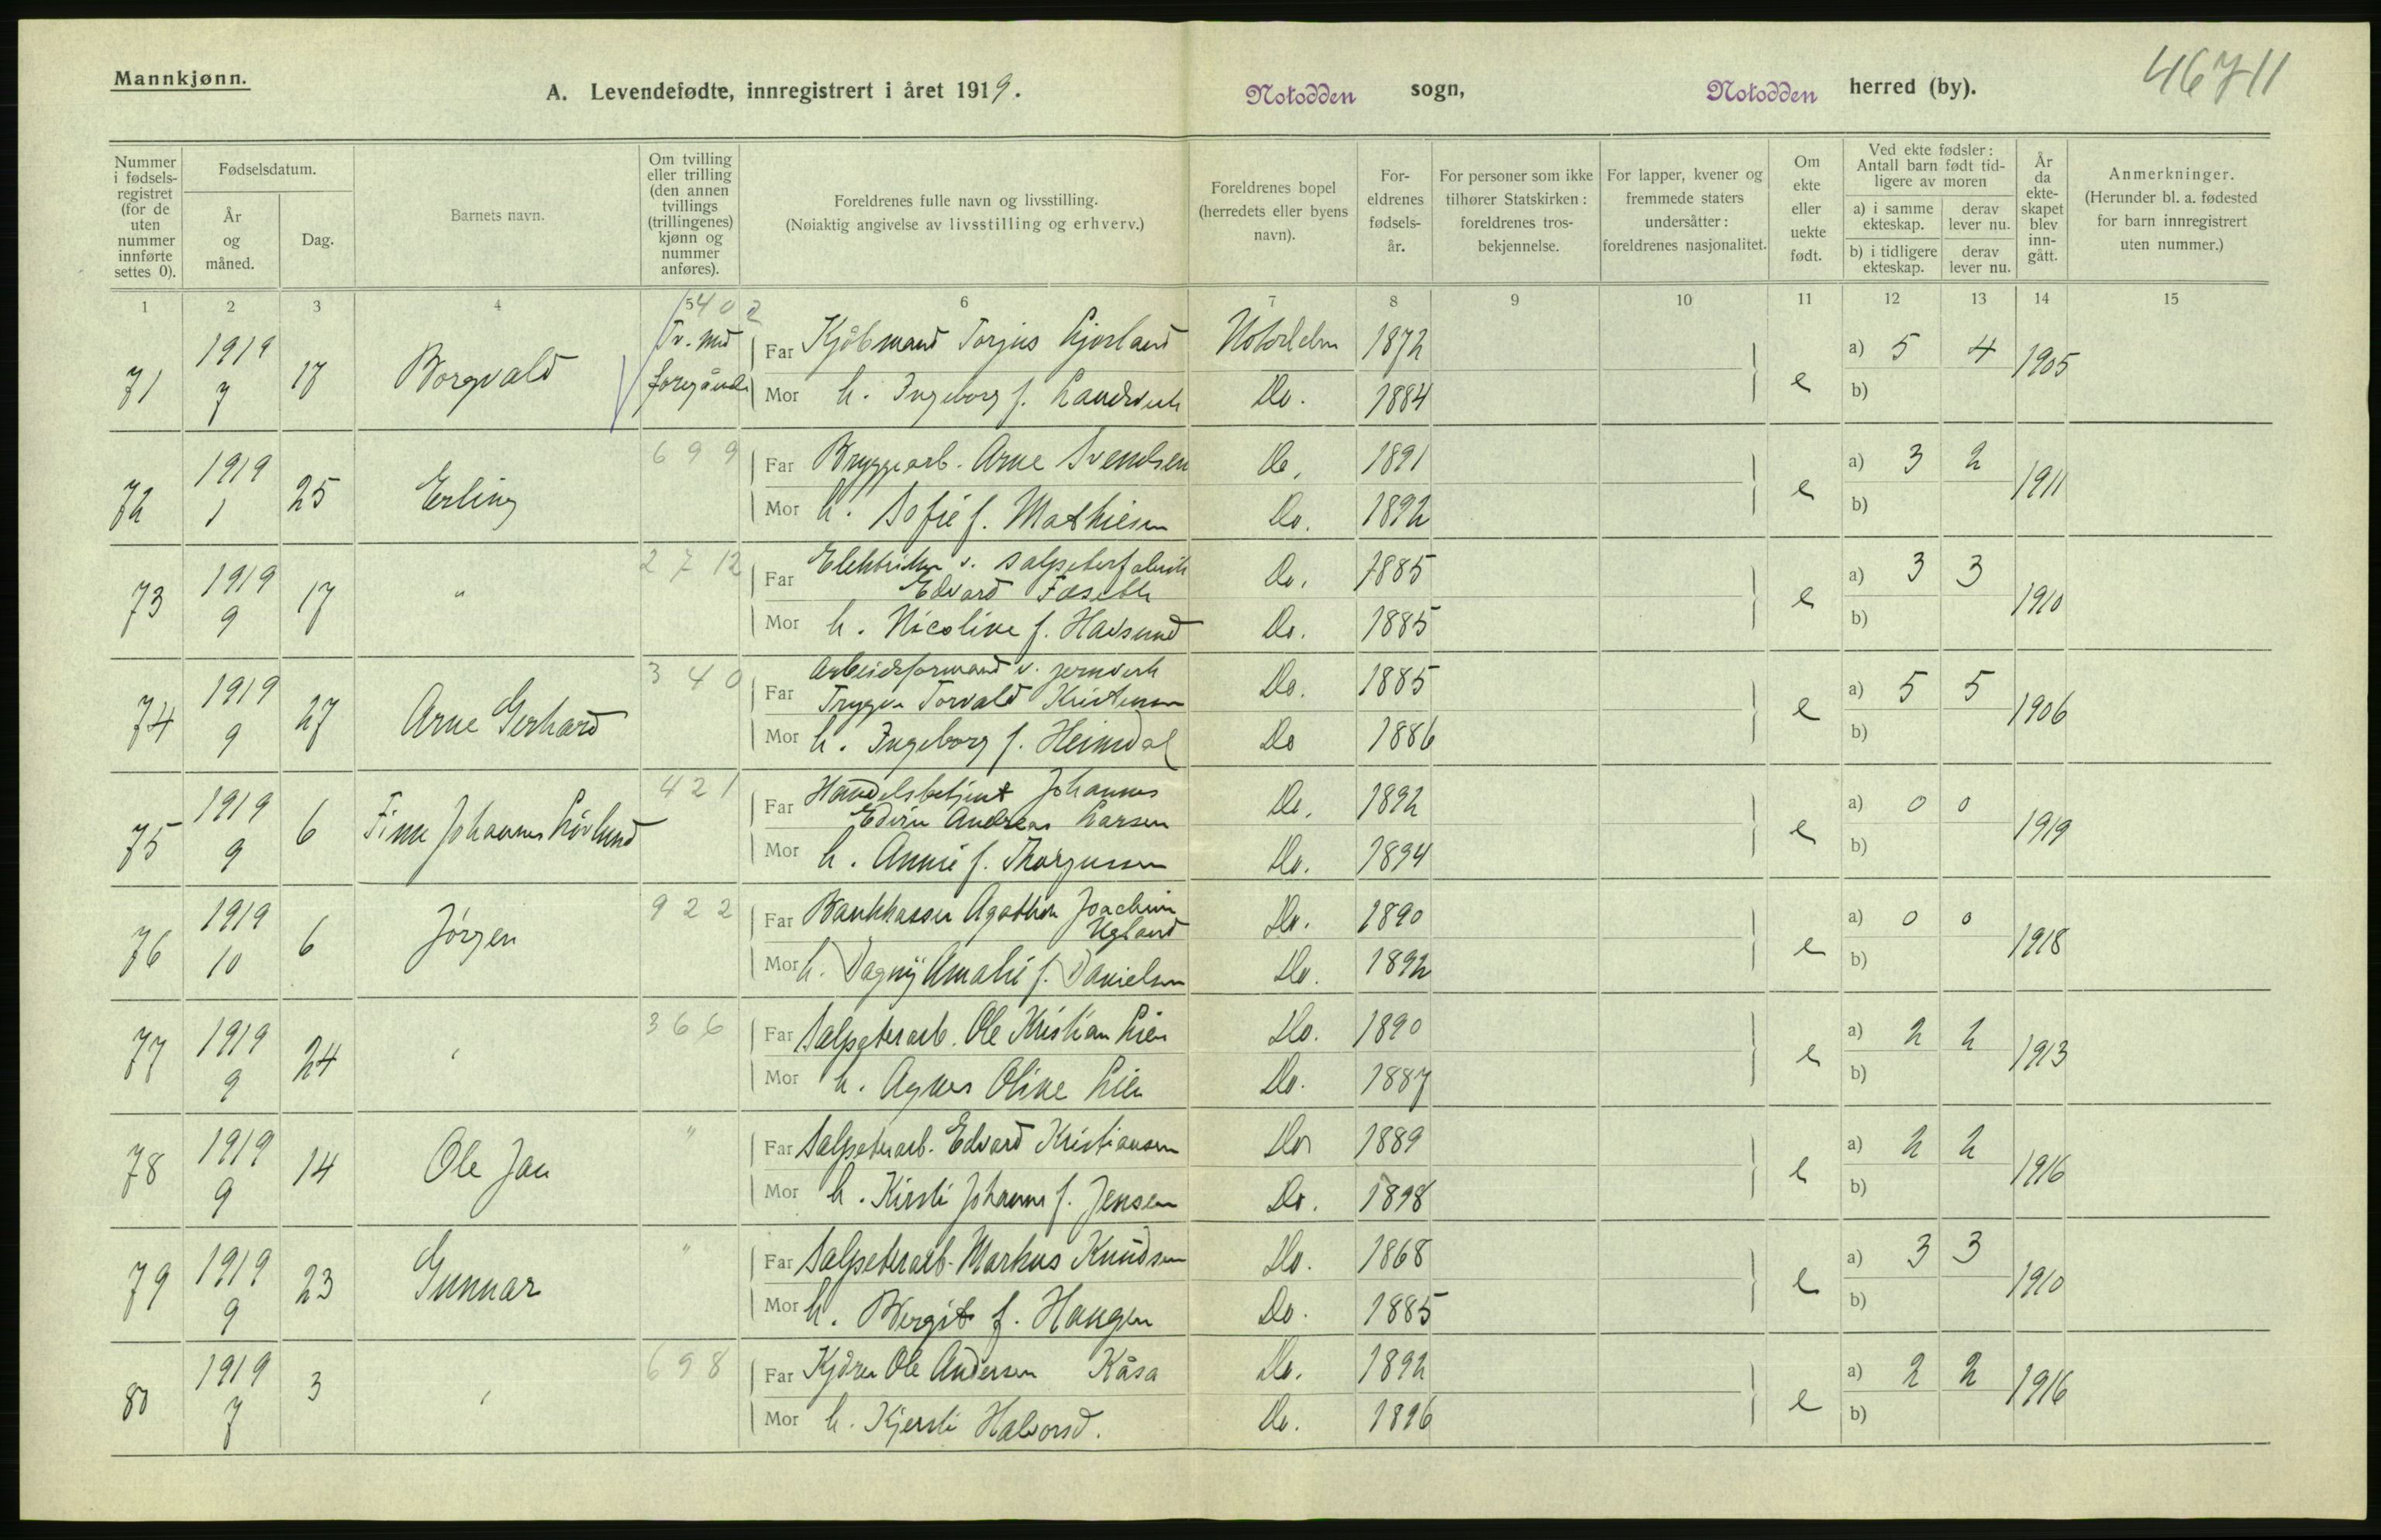 Mannkjønn.
A. Levendefødte, innregistrert i året 1919. Notodden sogn, Notodden herred (by). 46711
Nummer i fødselsregistret (for de uten nummer innførte settes 0).
Fødselsdatum.
År og måned.
Dag.
Barnets navn.
Om tvilling eller trilling (den annen tvillings (trillingenes) kjønn og nummer anføres).
Foreldrenes fulle navn og livsstilling.
(Nøiaktig angivelse av livsstilling og erhverv.)
Foreldrenes bopel (herredets eller byens navn).
Foreldrenes fødselsår.
For personer som ikke tilhører Statskirken: foreldrenes trosbekjennelse.
For lapper, kvener og fremmede staters undersåtter: foreldrenes nasjonalitet.
Om ekte eller uekte født.
Ved ekte fødsler: Antall barn født tidligere av moren
a) i samme ekteskap. derav lever nu.
b) i tidligere ekteskap. derav lever nu.
År da ekteskapet blev inngått.
Anmerkninger.
(Herunder bl. a. fødested for barn innregistrert uten nummer.)
1 2 3 4 5 6 7 8 9 10 11 12 13 14 15
402
71 1919 7 17 Borgvald Tv. med foregående Far Kjøbmand Torjus 1872 e a) 5 4 1905
Mor h. Ingeborg f. Do. 1884 b)
699
72 1919 25 Erling Far Bryggearb. Arne Svendsen Do. 1891 e a) 3 2 1911
Mor h. Sofie f. Mathiesen Do. 1892 b)
2712
73 1919 9 17 " Far Elektriker v. salpeterfabrik Edvard Do. 1885 e a) 3 3 1910
Mor h. Nicoline f. Havsund Do. 1885 b)
340
74 1919 9 27 Arne Gerhard Far Arbeidsformand v. jernverk Trygve Torvald Kristensen Do. 1885 e a) 5 5 1906
Mor h. Ingeborg f. Heimdal Do 1886 b)
421
75 1919 9 6 Finn Johannes Løvlund Far Handelsbetjent Johannes Edvin Andreas Larsen Do. 1892 e a) 0 0 1919
Mor h. Annie f. Do. 1894 b)
922
76 1919 10 6 Jørgen Far Bankkasser Joachim Ugland Do. 1890 e a) 0 0 1918
Mor h. Dagny Amalie f. Danielsen Do. 1892 b)
366
77 1919 9 24 " Far Salpeterarb. Ole Kristian Lien Do. 1890 e a) 2 2 1913
Mor h. Agnes Oline Lien Do. 1887 b)
78 1919 9 14 Ole Jan " Far Salpeterarb. Edvard Kristiansen Do. 1889 e a) 2 2 1916
Mor h. Kirsti Johanne f. Jensen Do. 1898 b)
79 1919 9 23 Gunnar " Far Salpeterarb. Markus Knudsen Do. 1868 e a) 3 3 1910
Mor h. Bergit f. Haugen Do. 1885 b)
698
80 1919 7 3 " Far Kjører Ole Andersen Kåsa Do. 1892 e a) 2 2 1916
Mor h. Kjersti Halvorsd. Do. 1896 b)